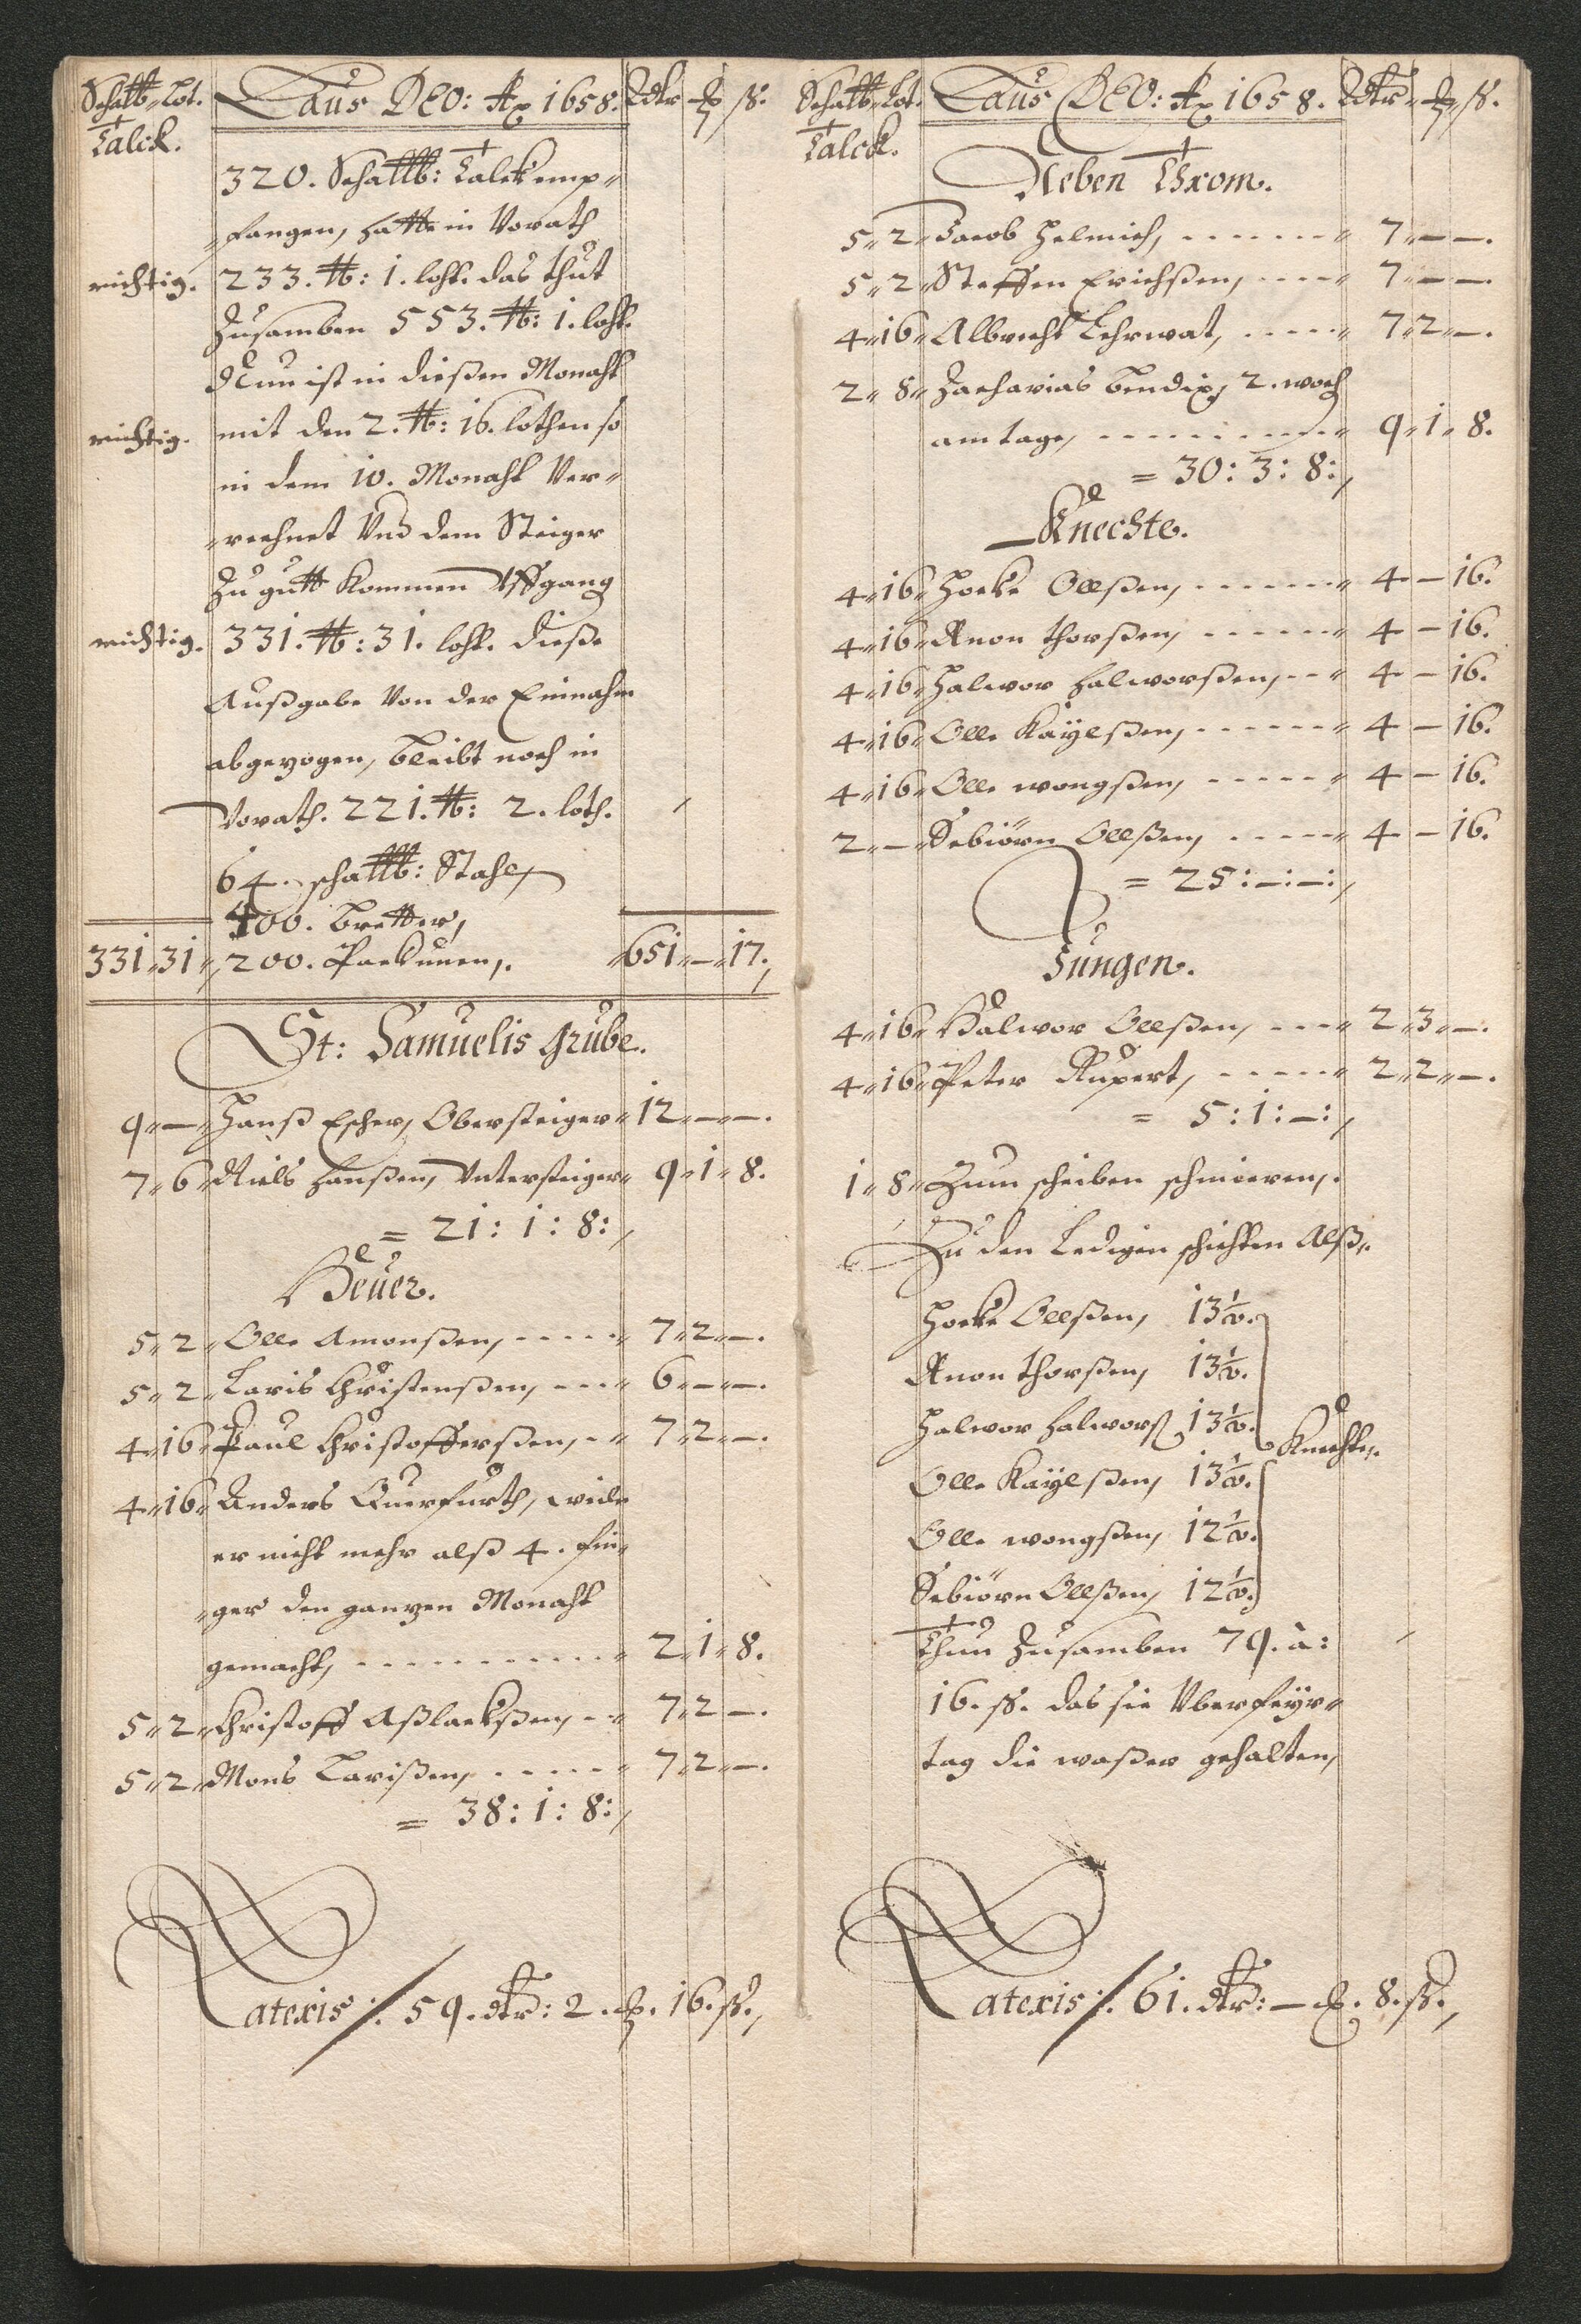 Schalb„ Lot. Laus DEO: Ao 1658. Rdtr ß.
Talck.
320. Schallb: Talck emp„
„fangen, hatte in Vorath
richtig. 233. ℔: 1. loht. das thut
Zusamben 553. ℔: 1. loht.
Nun ist in dießen Monaht
richtig. mit den 2. ℔: 16. lothen so
in dem 10. Monaht Ver„
„rechnet Vnd dem Steiger
Zu gutt kommen Vffgang
richtig. 331. ℔: 31. loht. dieße
Außgabe Von der Einnahm
abgezogen, bleibt noch in
Vorath. 221. ℔: 2. loth.
64. schallb: Stahl,
400. Bretter,
331„31„ 200. „651„—„17.
St: Samuelis Grube.
9„—„ Hanß Escher, Obersteiger„ 12„—„—.
7„6„ Niels Hanßen, Vntersteiger„ 9„1„8.
= 21: 1: 8:,
Heuer.
5„2„ Olle Amonßen, - - - - - „ 7„2„—.
5„2„ Laris Christenßen, - - - „ 6„—„—.
4„16„ Paul Christofferßen, - „ 7„2„—.
4„16„ Anders Querfurth, weiln
er nicht mehr alß 4. fin„
„ger den ganzen Monaht
gemacht, - - - - - - - - - - „ 2„1„8.
5„2„ Christoff Aßlackßen, - - „ 7„2„—.
5„2„ Mons Larißen, - - - - - „ 7„2„—.
= 38: 1: 8:,
Lateris :/: 59. dtr: 2. 16. ß.,
Schalb„ Lot. Laus DEO: Ao 1658. Rdtr„ ß.
Talck.
Neben Throm.
5„2„ Jacob Helmich, - - - - - - „ 7„—„—.
5„2„ Steffen Erichßen, - - - - „ 7„—„—.
4„16„ Albrecht Lehrwat, - - - - - „ 7„2„—.
2„8„ Zacharias Bendix, 2. woch
am tage, - - - - - - - - - - „ 9„1„8.
= 30: 3: 8:,
Knechte.
4„16„ Hocke Ollßen, - - - - - - - „ 4 — 16.
4„16„ Anon Thorßen, - - - - - - „ 4 — 16.
4„16„ Halwor Halworßen, - - „ 4 — 16.
4„16„ Olle Kaÿlßen, - - - - - - - „ 4 — 16.
4„16„ Olle wongßen, - - - - - - „ 4 — 16.
2„—„ Sebiörn Ollßen, - - - - - „ 4 — 16.
= 25: —: —:,
Jungen.
4„16„ Halwor Ollßen, - - - - „ 2„3„—.
4„16„ Peter Rupert, - - - - - „ 2„2„—.
= 5: 1: —:,
1„8„ Zum scheiben schmieren,.
Zu den Ledigen schichten Alß„
Hocke Ollßen, 13
Anon Thorßen, 13
Halwor Halworß 13
Knechte,.
Olle Kaÿlßen, 13
Olle wongßen, 12
Sebiörn Ollßen, 12
Thun Zusamben 79. à:
16. ß. das sie Vberfeÿr„
tag die waßer gehalten,
Lateris :/: 61. dtr: — 8. ß.,